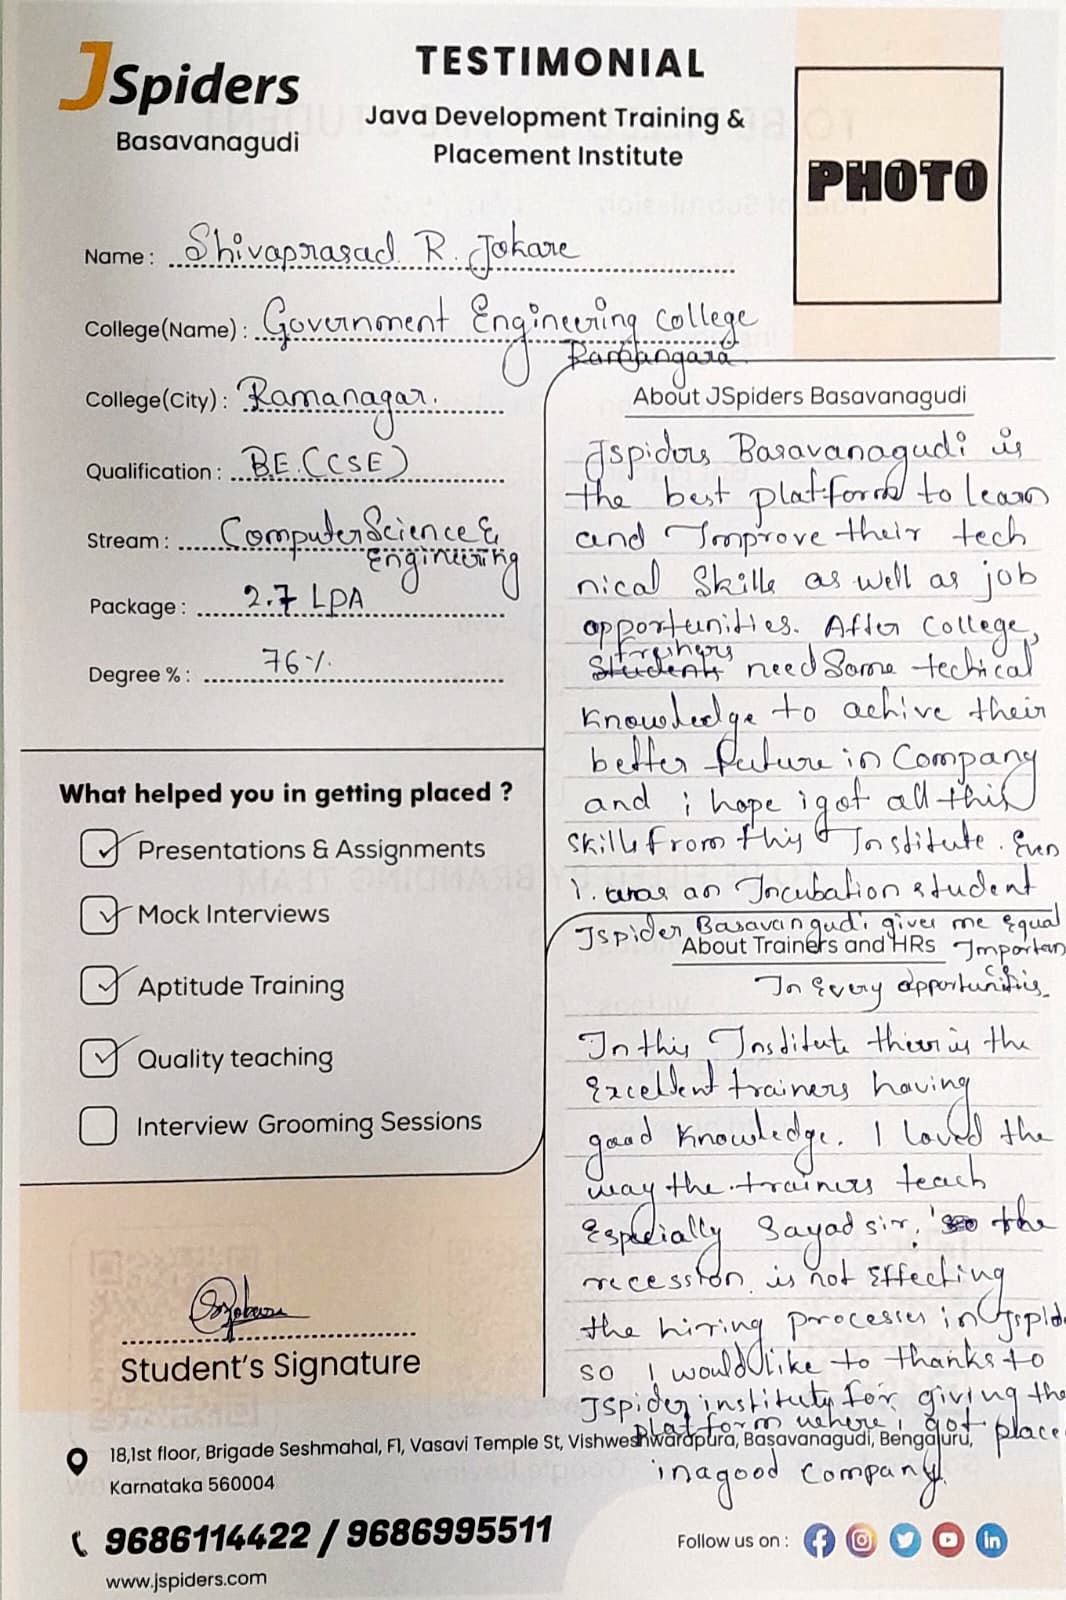 JSpiders
Basavanagudi
TESTIMONIAL
Java Development Training &
Placement Institute
PHOTO
Name : Shivaprasad. R. Jokare
College(Name) : Government Engineering College
Ramangara
College(City) : Ramanagar.
Qualification : BE.(CSE)
Stream : Computer Science &
Engineering
Package : 2.7 LPA
Degree % : 76%
What helped you in getting placed ?
Presentations & Assignments
Mock Interviews
Aptitude Training
Quality teaching
Interview Grooming Sessions
Student's Signature
About JSpiders Basavanagudi
Jspiders Basavanagudi is
the best platform to learn
and Improve their tech
nical Skills as well as job
opportunities. After College,
freshers
Students need Some techical
Knowledge to achive their
better future in Company
and i hope i got all this
skills from this Institute. Even
i. was an Incubation student
Jspider Basavangudi gives me equal
About Trainers and HRs Importan
ce
In Every opportunities.
In this Institute their is the
Excellent trainers having
good Knowledge. I loved the
way the trainers teach
Especially Sayad sir, the
recession is not Effecting
the hiring processes in Jspid
so I would like to thanks to
JSpider institute for giving the
platform where i got place
in a good company.
18,1st floor, Brigade Seshmahal, F1, Vasavi Temple St, Vishweshwarapura, Basavanagudi, Bengaluru,
Karnataka 560004
9686114422 / 9686995511
Follow us on :
www.jspiders.com